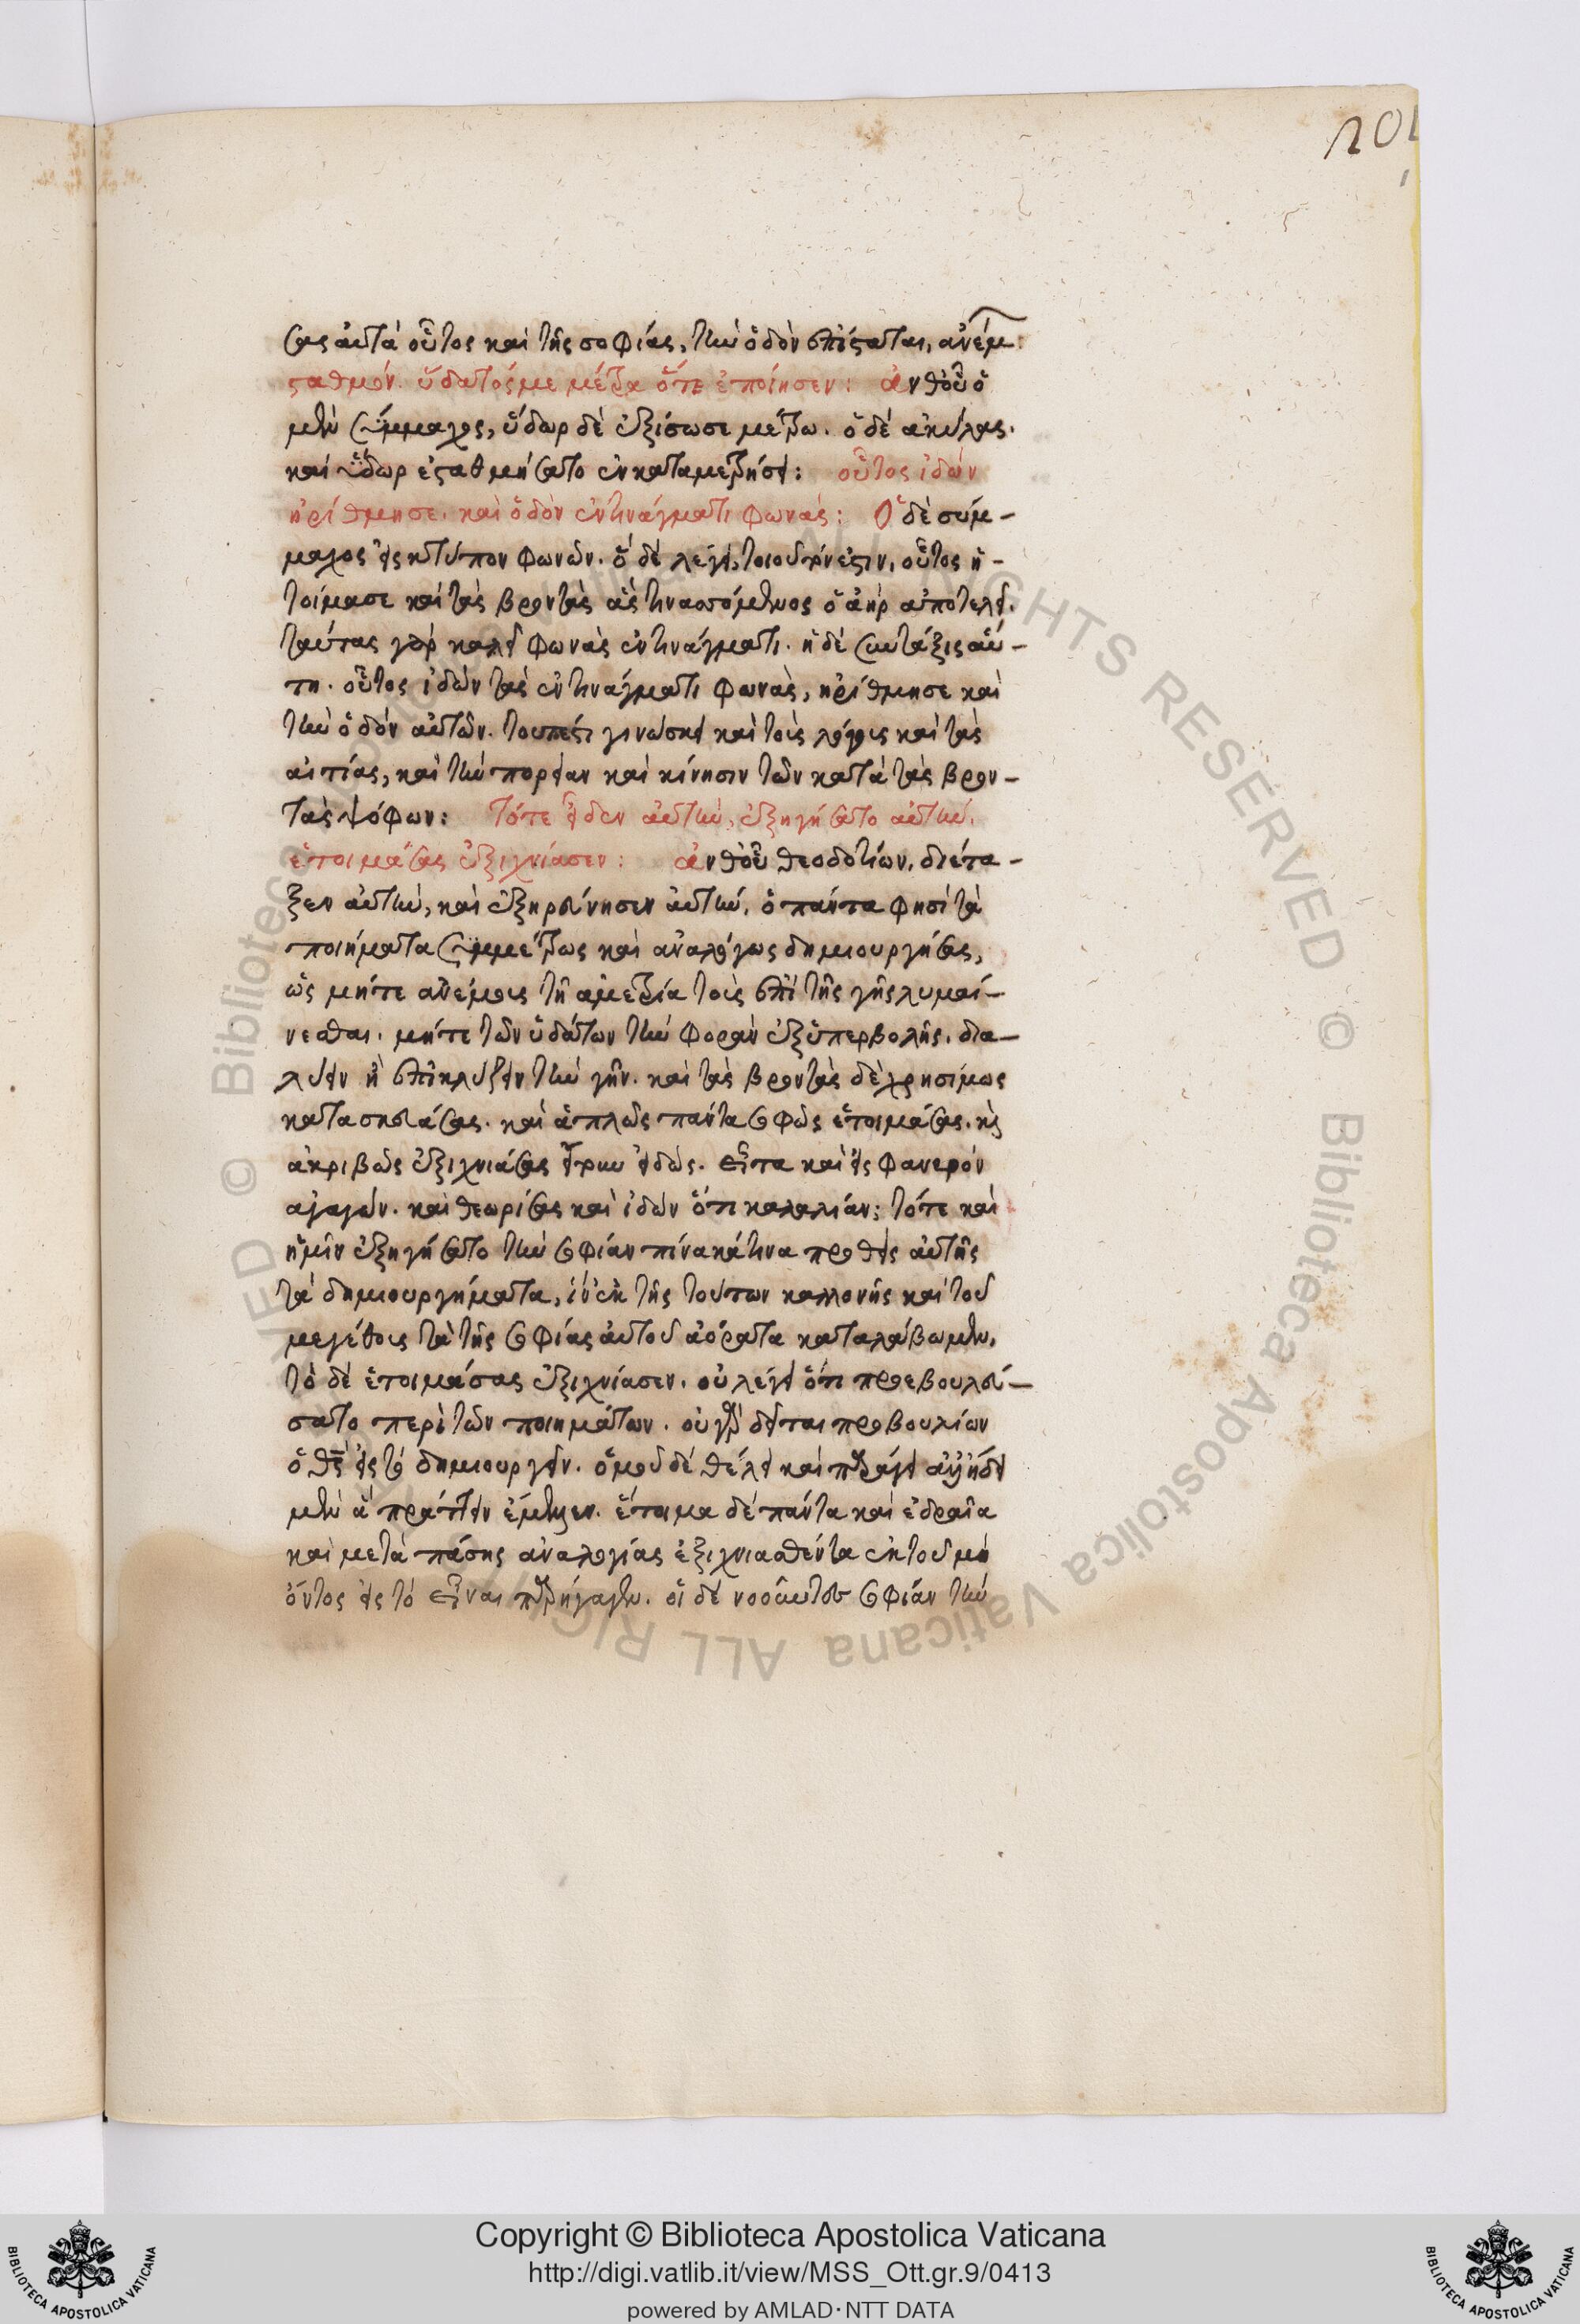 201
σας αὐτὰ οὗτος καὶ τῆς σοφίας, τὴν ὁδὸν ἐπίσταται, ἀνέμων
σταθμόν. ὕδατός με μέτρα ὅτε ἐποίησεν: ἀνθ' οὗ ὁ
μὲν σύμμαχος, ὕδωρ δὲ ἐξίσωσε μέτρω. ὁ δὲ ἀκύλας.
καὶ ὕδωρ ἐσταθμήσατο ἐν καταμετρήσει: οὗτος ἰδὼν
ἠρίθμησε. καὶ ὁδὸν ἐν τινάγματι φωνάς: Ὁ δὲ σύμ-
μαχος εἰς κτύπον φωνῶν. ὃ δὲ λέγει, τοιοῦτόν ἐστιν, οὗτος ἡ-
τοίμασε καὶ τὰς βροντὰς ἃς τινασσόμενος ὁ ἀὴρ ἀποτελεῖ.
ταύτας γὰρ καλεῖ φωνὰς ἐν τινάγματι. ἡ δὲ σύνταξις αὕ-
τη. οὗτος ἰδὼν τὰς ἐν τινάγματι φωνὰς, ἠρίθμησε καὶ
τὴν ὁδὸν αὐτῶν. τουτέστι γινώσκει καὶ τοὺς λόγους καὶ τὰς
αἰτίας, καὶ τὴν πορείαν καὶ κίνησιν τῶν κατὰ τὰς βρον-
τὰς ψόφων: τότε εἶδεν αὐτὴν, ἐξηγήσατο αὐτήν.
ἑτοιμάσας ἐξιχνίασεν: ἀνθ' οὗ θεοδοτίων. διέτα-
ξεν αὐτὴν, καὶ ἐξηρεύνησεν αὐτήν. ὁ πάντα φησὶ τὰ
ποιήματα συμμέτρως καὶ ἀναλόγως δημιουργήσας,
ὡς μήτε ἀνέμους τῆ ἀμετρία τοὺς ἐπὶ τῆς γῆς λυμαί-
νεσθαι. μήτε τῶν ὑδάτων τὴν φορὰν ἐξ ὑπερβολῆς. δια-
λύειν ἢ ἐπικλύζειν τὴν γῆν. καὶ τὰς βροντὰς δὲ χρησίμως
κατασκευάσας. καὶ ἁπλῶς πάντα σοφῶς ἑτοιμάσας. καὶ
ἀκριβῶς ἐξιχνιάσας εἰδώς. εἶτα καὶ εἰς φανερὸν
ἀγαγών. καὶ θεωρίσας καὶ ἰδὼν ὅτι καλὰ λίαν: τότε καὶ
ἡμῖν ἐξηγήσατο τὴν σοφίαν πίνακά τινα προθεὶς αὐτῆς
τὰ δημιουργήματα, ἵν' ἐκ τῆς τούτων καλλονῆς καὶ τοῦ
μεγέθους τὰ τῆς σοφίας αὐτοῦ ἀόρατα καταλάβωμεν.
τὸ δὲ ἑτοιμάσας ἐξιχνίασεν. οὐ λέγει ὅτι προεβουλεύ-
σατο περὶ τῶν ποιημάτων. οὐ γὰρ δεῖται προβουλίων
ὁ θς εἰς τὸ δημιουργεῖν. ὁμοῦ δὲ θέλει καὶ παράγει ἀλλ' ἤδει
μὲν ἃ πράττειν ἔμελλεν. ἕτοιμα δὲ πάντα καὶ ἑδραῖα
καὶ μετὰ πάσης ἀναλογίας ἐξιχνιασθέντα ἐκ τοῦ μὴ
ὄντος εἰς τὸ εἶναι παρήγαγεν. οἱ δὲ σοφίαν τὴν
Copyright © Biblioteca Apostolica Vaticana
http://digi.vatlib.it/view/MSS_Ott.gr.9/0413
powered by AMLAD·NTT DATA